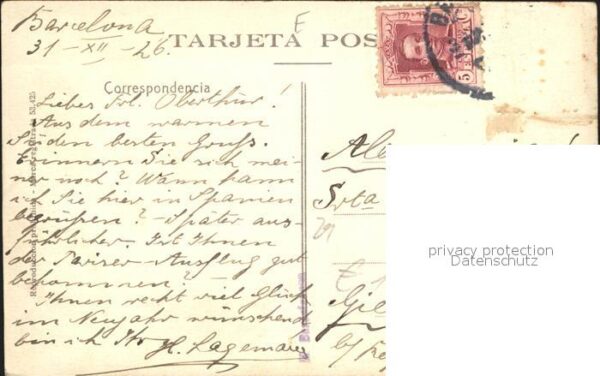 Barcelona
31-XII-26.
TARJETA POS
Correspondencia
Liebes Frl. Oberthür!
Aus dem warmen
Süden besten Gruss.
Erinnern Sie sich mei-
ner noch? Wann kann
ich Sie hier in Spanien
begrüßen? - Später aus-
führlicher. Ist Ihnen
der Pariser-Ausflug gut
bekommen?
Ihnen recht viel Glück
im Neujahr wünschend
bin ich Ihr H. Lagemann
Ale
Srta
E
privacy protection
Datenschutz